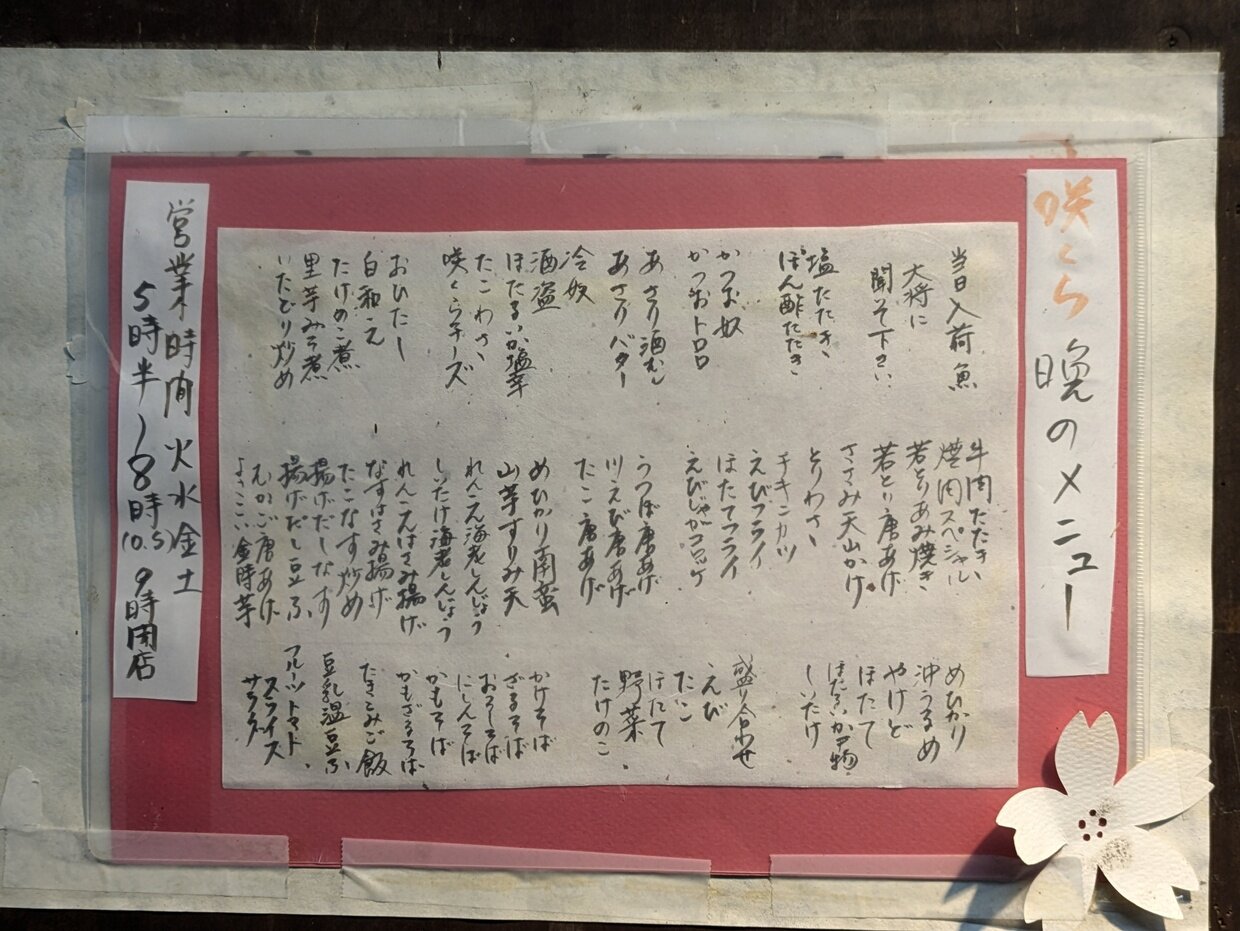 咲くら 晩のメニュー
当日入荷魚
大将に
聞そ下さい
塩たたき
ぽん酢たたき
かつお奴
かつおトロロ
あさり酒むし
あさりバター
冷奴
酒盗
ほたるいか塩辛
たこわさ
咲くらチーズ
おひたし
白和え
たけのこ煮
里芋みそ煮
いたどり炒め
牛肉たたき
焼肉スペシャル
若とりあみ焼き
若とり唐あげ
ささみ天山かけ
とりわさ
チキンカツ
えびフライ
ほたてフライ
えびじゃがコロッケ
うつぼ唐あげ
川えび唐あげ
たこ唐あげ
めひかり南蛮
山芋すりみ天
れんこん海老しんじょう
しいたけ海老しんじょう
れんこんはさみ揚げ
なすはさみ揚げ
たこなす炒め
揚げだしなす
揚げだし豆ふ
むかご唐あげ
よさこい金時芋
めひかり
沖うるめ
やけど
ほたて
ほたるいか干物
しいたけ
盛り合わせ
えび
たこ
ほたて
野菜
たけのこ
かけそば
ざるそば
おろしそば
にしんそば
かもそば
かもざるそば
たきこみご飯
豆乳温豆ふ
フルーツトマト
スライス
サラダ
営業時間 火水金土
5時半〜8時(O.S) 9時閉店